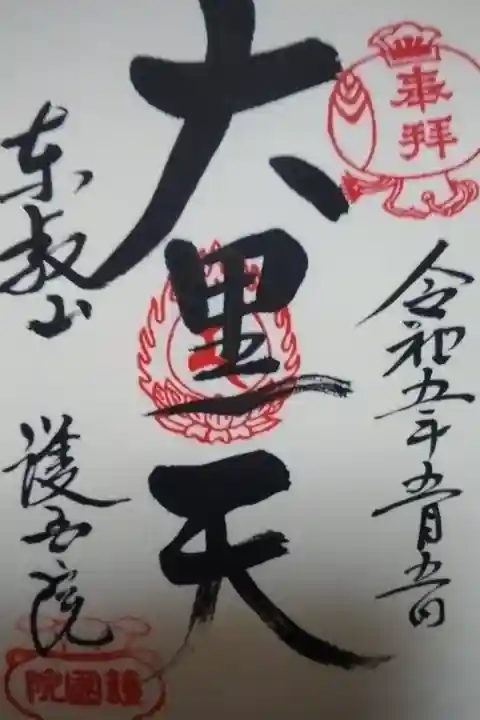 奉拝
令和五年五月五日
大黒天
東叡山
護国院
護國院